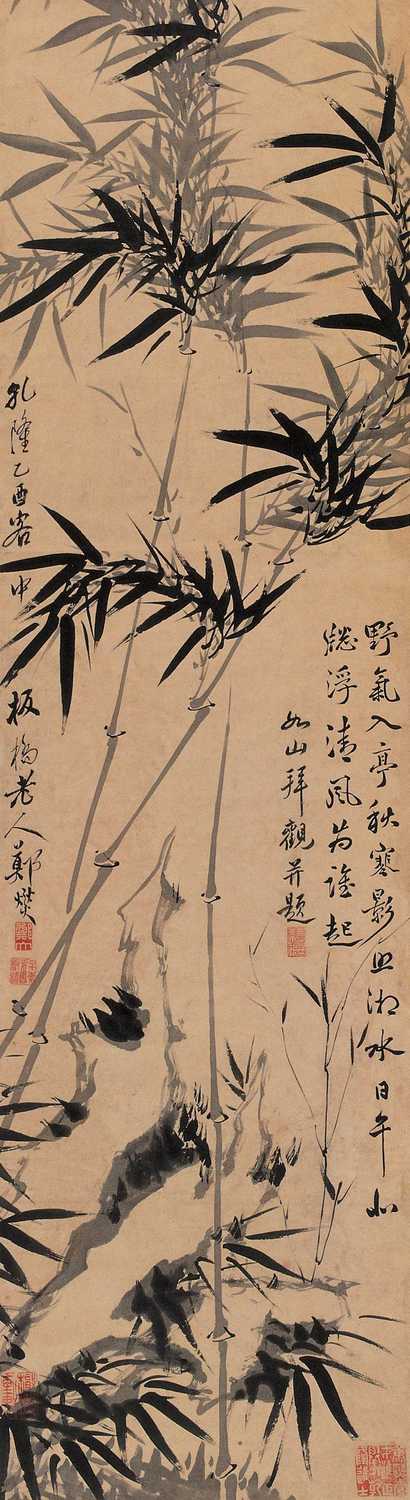 野氣入亭秋寒影湘水日午北
牕浮清風為誰起
如山拜觀并題
乾隆乙酉客中 板橋老人鄭燮